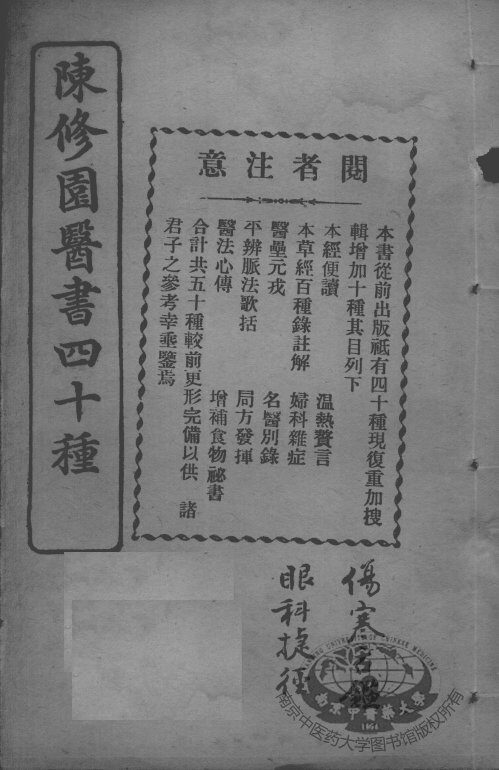 陳修園醫書四十種
閱者注意
本書從前出版祗有四十種現復重加搜
輯增加十種其目列下
本經便讀 温熱贅言
本草經百種錄註解 婦科雜症
醫壘元戎 名醫別錄
平辨脈法歌括 局方發揮
醫法心傳 增補食物祕書
合計共五十種較前更形完備以供 諸
君子之參考幸垂鑒焉
傷寒舌鑑
眼科捷徑
南京中醫藥大學
1954
南京中医药大学图书馆版权所有